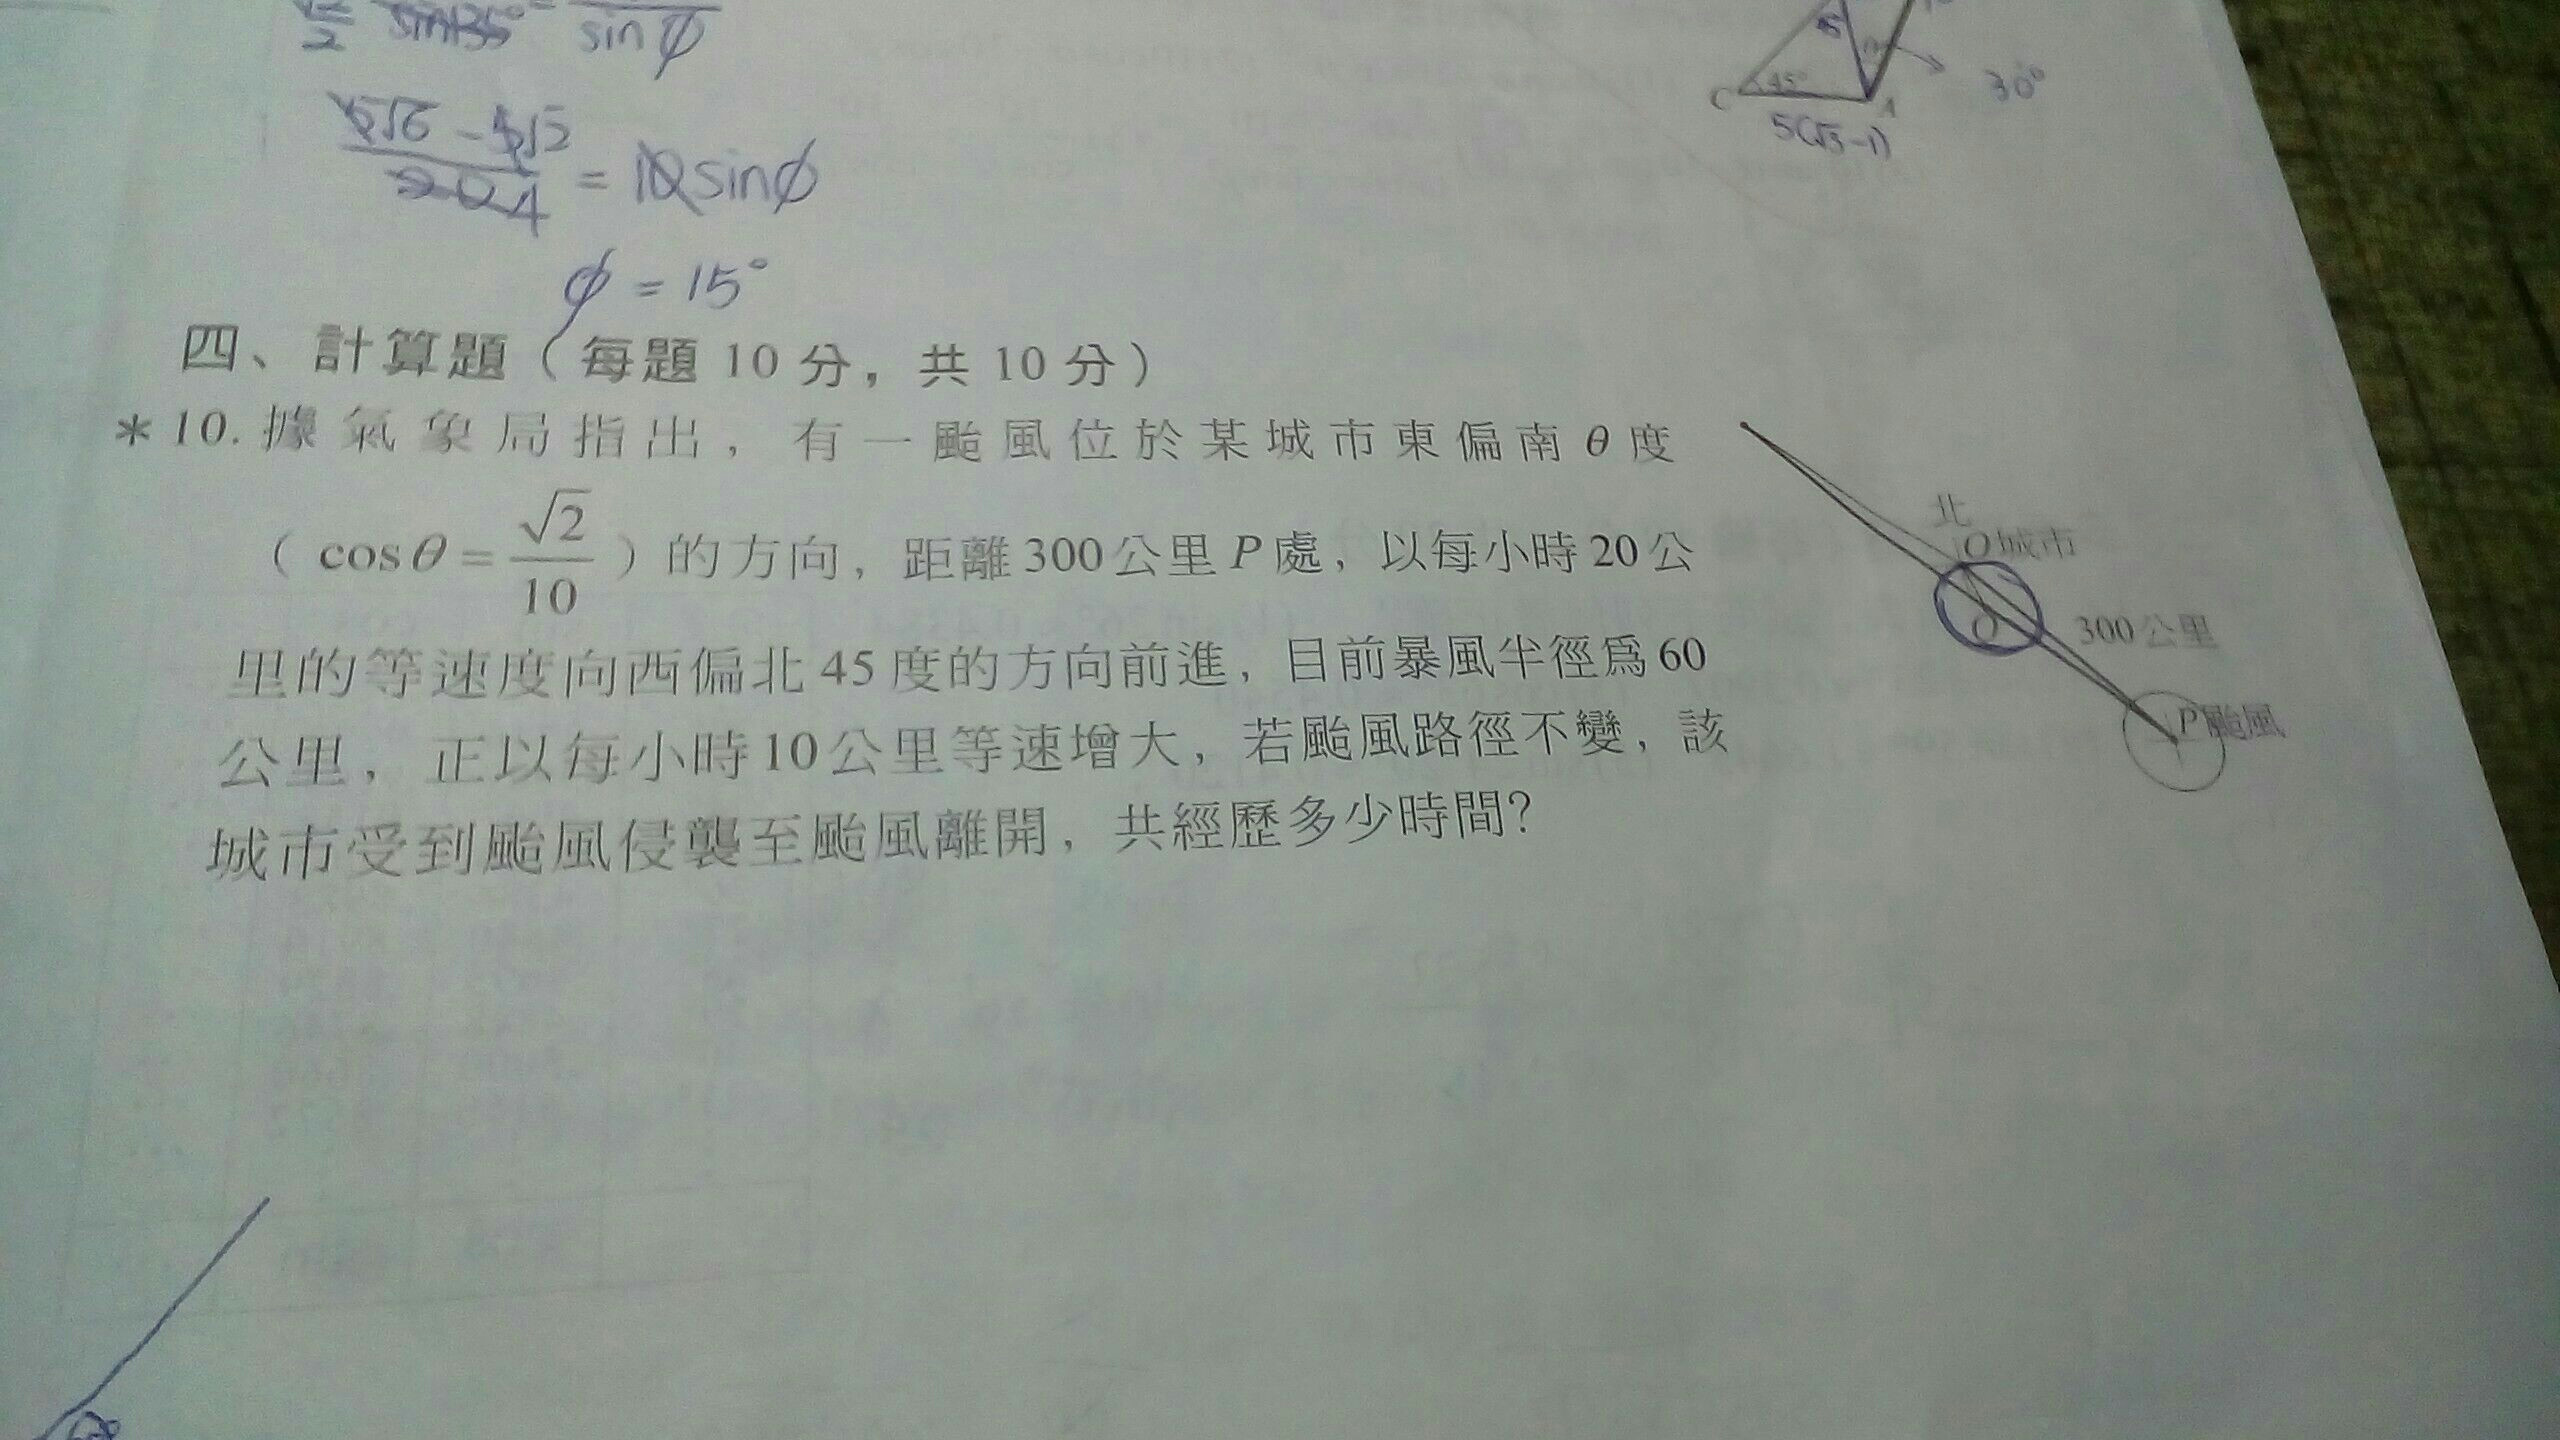 sin135° = sin φ
5√6 - 5√2
= 10 sin φ
φ = 15°
45°
C
A
30°
5(√3-1)
四、計算題（每題 10 分，共 10 分）
*10. 據氣象局指出，有一颱風位於某城市東偏南 θ 度
（cosθ = √2/10）的方向，距離 300 公里 P 處，以每小時 20 公
里的等速度向西偏北 45 度的方向前進，目前暴風半徑為 60
公里，正以每小時 10 公里等速增大，若颱風路徑不變，該
城市受到颱風侵襲至颱風離開，共經歷多少時間？
北
O 城市
300 公里
P 颱風